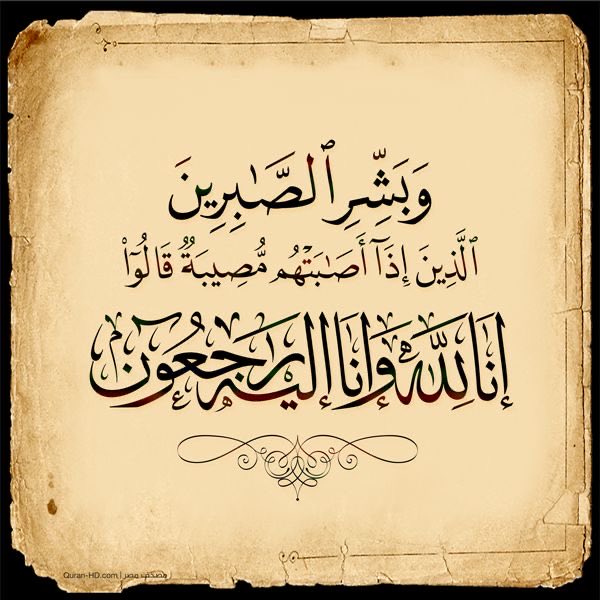 وَبَشِّرِ ٱلصَّـٰبِرِينَ
ٱلَّذِينَ إِذَآ أَصَـٰبَتْهُم مُّصِيبَةٌ قَالُوٓا۟
إنا لله وإنا إليه راجعون
Quran-HD.com | مصحف مصر